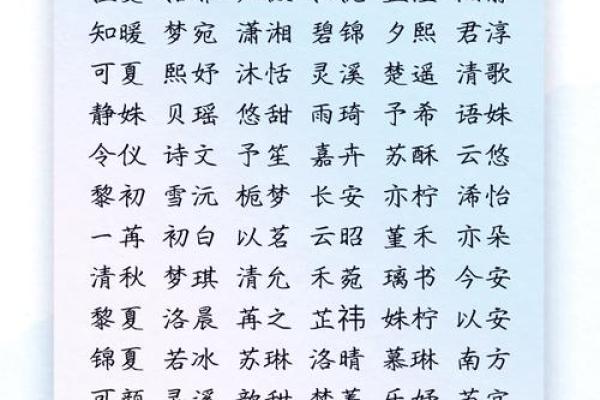 知暖 梦宛 潇湘 碧锦 夕熙 君淳
可夏 熙妤 沐恬 灵溪 楚遥 清歌
静姝 贝瑶 悠甜 雨琦 予希 语姝
令仪 诗文 予笙 嘉卉 苏酥 云悠
黎初 雪沅 栀梦 长安 亦柠 浠怡
一苒 初白 以茗 云昭 堇禾 亦朵
清秋 梦琪 清允 禾菀 璃书 今安
黎夏 洛晨 苒之 芷祎 姝柠 以安
锦夏 若冰 苏琳 洛晴 慕琳 南方
可颜 灵溪 歆甜 乐妤